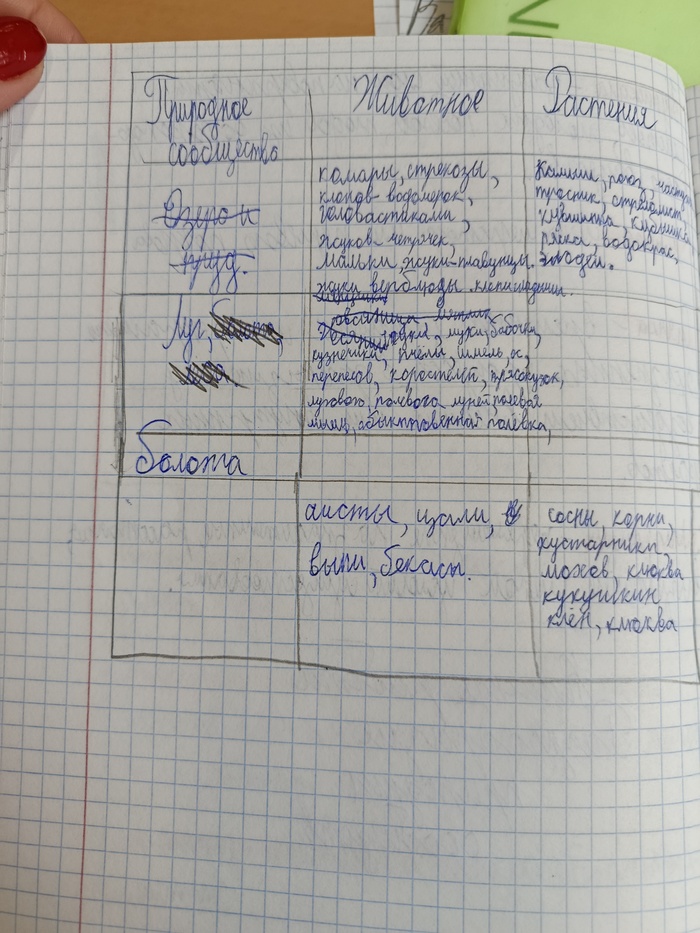 Природное
сообщество
Животное
Растения
Озеро и
пруд.
комары, стрекозы,
клопов-водомерок,
головастиками,
жуков-
мальки, жуки-плавунцы.
жуки верблюды
Камыш, рогоз,
тросник, стрелолист
кувшинка, кубышка
ряска, водокрас,
элодеи.
Луг,
мухи, бабочки,
кузнечики, пчёлы, шмель, ос,
перепесов, коростелей,
лугового, полевого луней, полевая
обыктновенная полёвка,
болота
аисты, цапли,
выпи, бекасы.
сосны, корни,
кустарники
мохов, клюква
кукушкин
клён, клюква